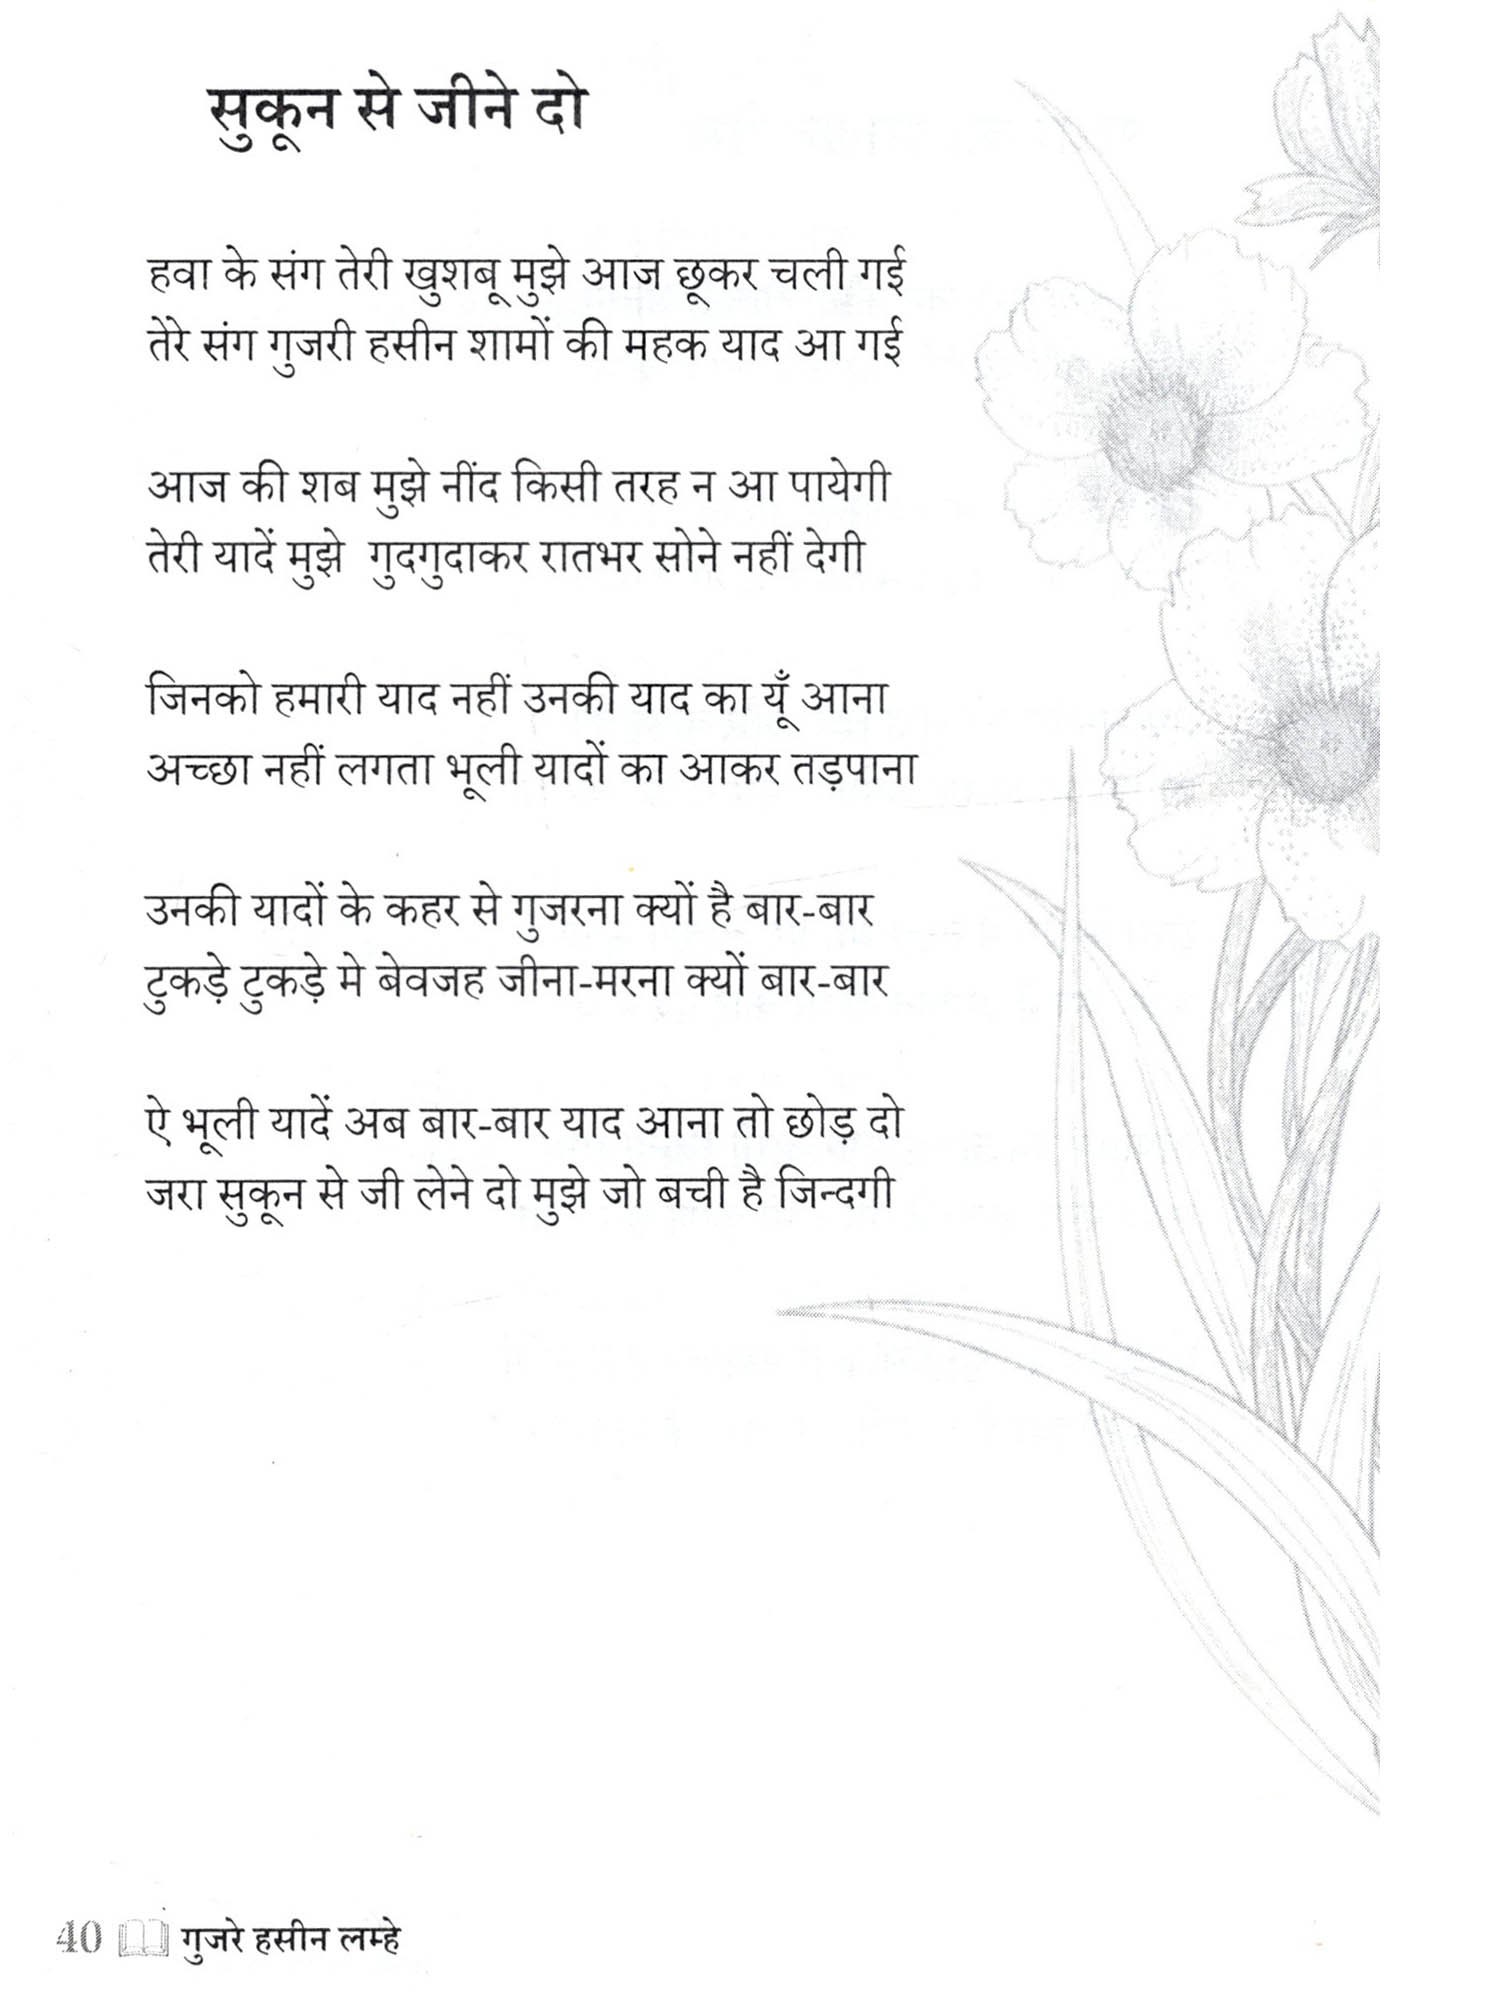 सुकून से जीने दो
हवा के संग तेरी खुशबू मुझे आज छूकर चली गई
तेरे संग गुजरी हसीन शामों की महक याद आ गई
आज की शब मुझे नींद किसी तरह न आ पायेगी
तेरी यादें मुझे गुदगुदाकर रातभर सोने नहीं देगी
जिनको हमारी याद नहीं उनकी याद का यूँ आना
अच्छा नहीं लगता भूली यादों का आकर तड़पाना
उनकी यादों के कहर से गुजरना क्यों है बार-बार
टुकड़े टुकड़े मे बेवजह जीना-मरना क्यों बार-बार
ऐ भूली यादें अब बार-बार याद आना तो छोड़ दो
जरा सुकून से जी लेने दो मुझे जो बची है जिन्दगी
40 गुजरे हसीन लम्हे